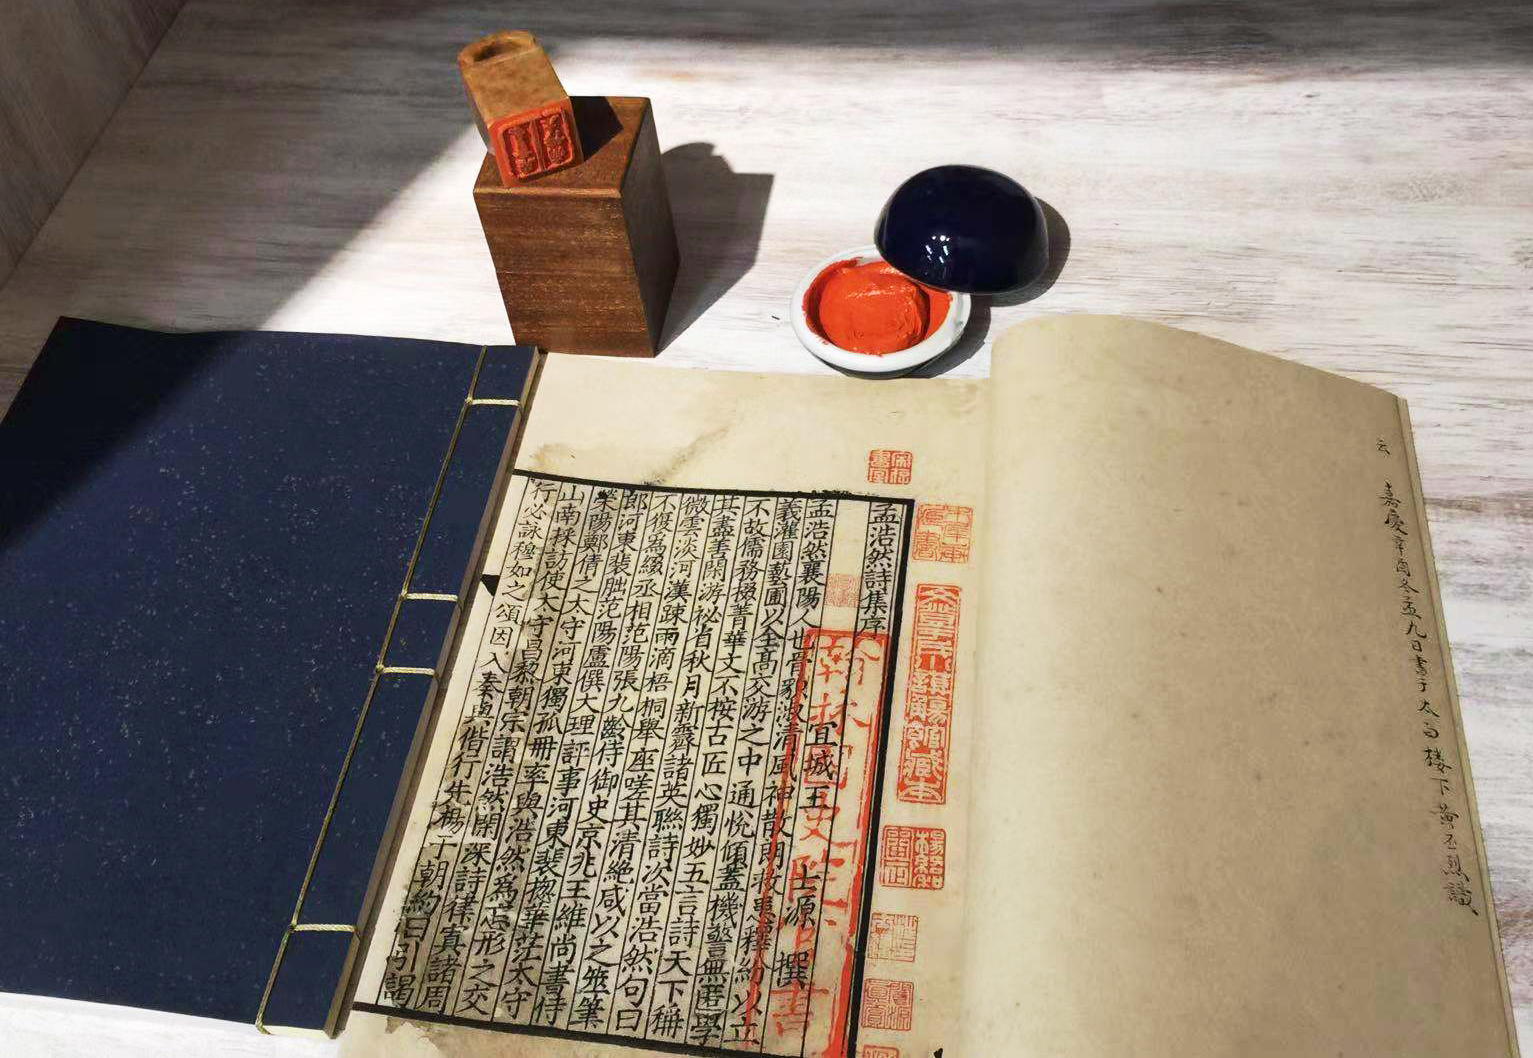 云
嘉慶辛酉冬孟九日書于太白樓下黃丕烈識
宋存書室
文登于氏小謨觴館藏本
翰林國史院官書
孟浩然詩集序
宜城王士源撰
孟浩然襄陽人也骨貌淑清風神散朗救患釋紛以立
義灌園藝圃以全高交游之中通悅傾蓋機警無匿學
不故儒務掇菁華文不按古匠心獨妙五言詩天下稱
其盡善閒游祕省秋月新霽諸英聯詩次當浩然句曰
微雲淡河漢疎雨滴梧桐舉座嗟其清絕咸以之筆
不復為綴丞相范陽張九齡侍御史京兆王維尚書侍
郎河東裴朏范陽盧僎大理評事河東裴揔華茫太守
滎陽鄭倩之太守河東獨孤冊率與浩然為忘形之交
山南採訪使太守昌黎朝宗謂浩然閒深詩律寘諸周
行必詠穆如之頌因入奏與偕行先揚于朝約日引謁